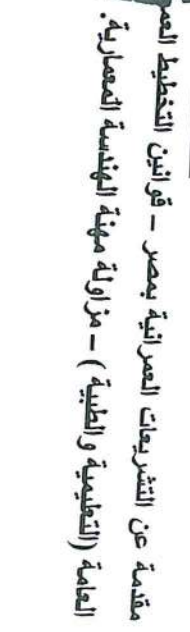 مقدمة عن التشريعات العمرانية بمصر – قوانين التخطيط
العامة (التعليمية والطبية) – مزاولة مهنة الهندسة المعمارية.